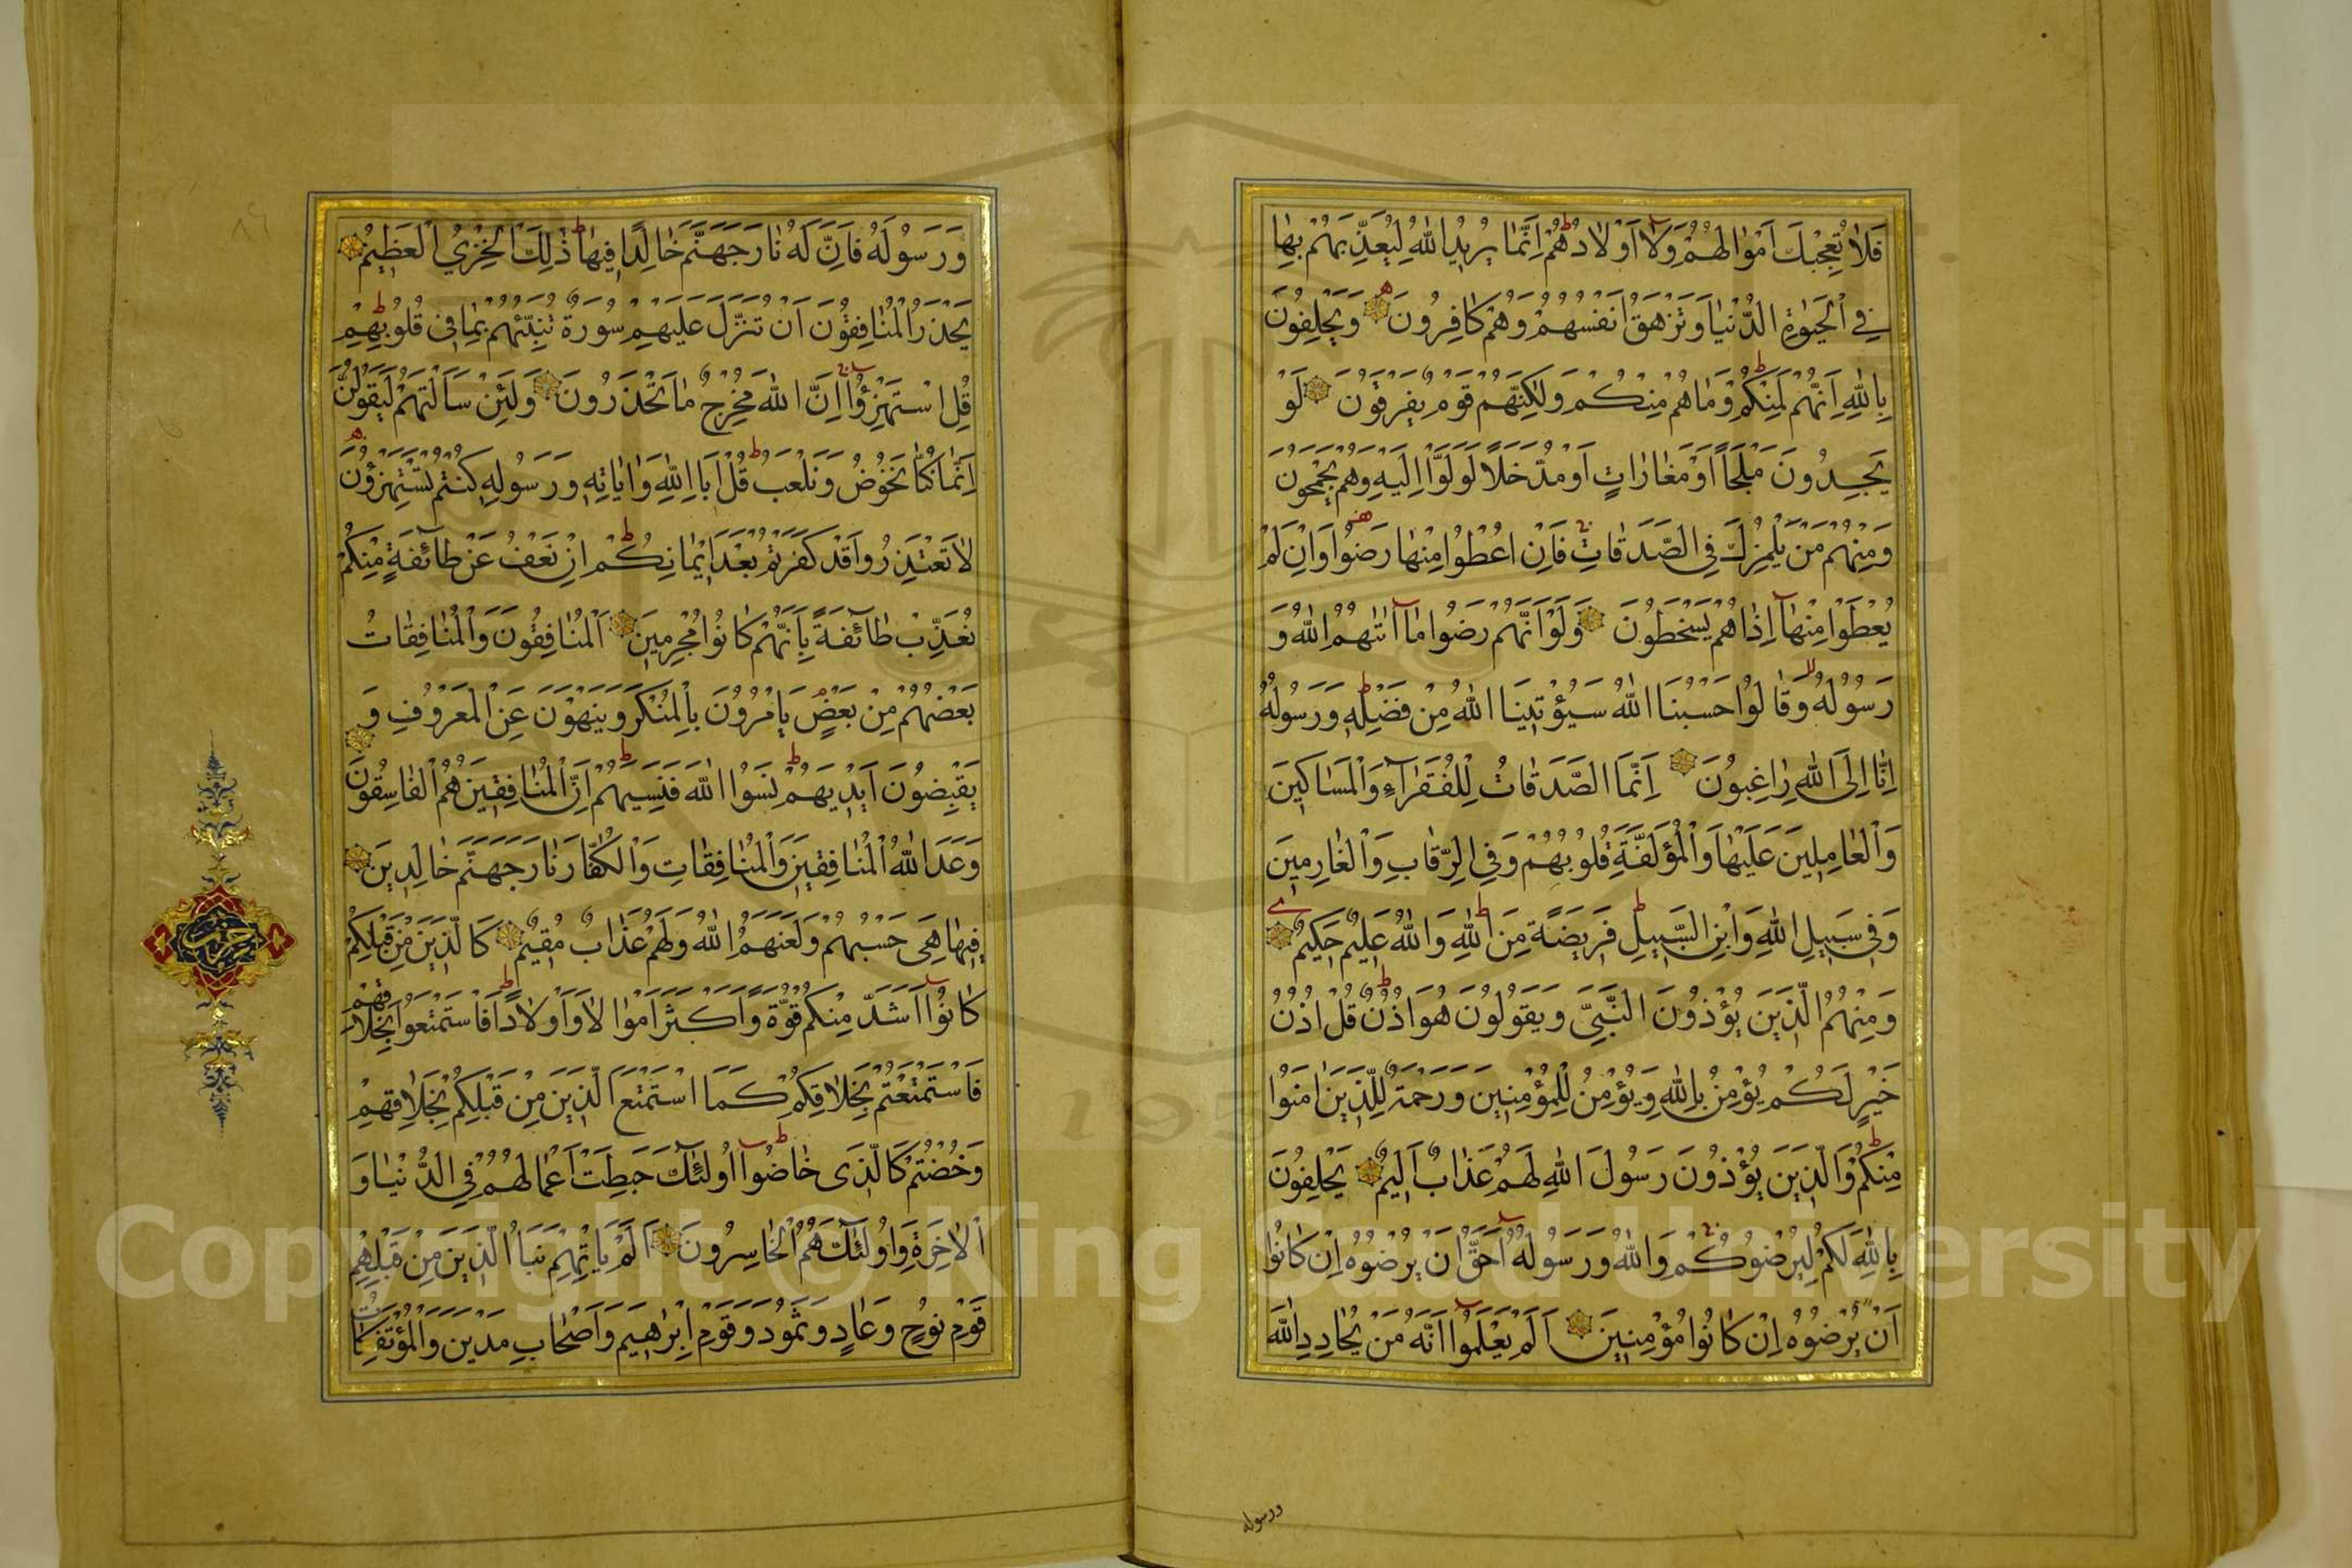 فَلَا تُعْجِبْكَ اَمْوَالُهُمْ وَلَا اَوْلَادُهُمْ اِنَّمَا يُرِيدُ اللهُ لِيُعَذِّبَهُمْ بِهَا
فِي الْحَيٰوةِ الدُّنْيَا وَتَزْهَقَ اَنْفُسُهُمْ وَهُمْ كَافِرُونَ وَيَحْلِفُونَ
بِاللهِ اِنَّهُمْ لَمِنْكُمْ وَمَا هُمْ مِنْكُمْ وَلٰكِنَّهُمْ قَوْمٌ يَفْرَقُونَ لَوْ
يَجِدُونَ مَلْجَأً اَوْ مَغَارَاتٍ اَوْ مُدَّخَلًا لَوَلَّوْا اِلَيْهِ وَهُمْ يَجْمَحُونَ
وَمِنْهُمْ مَنْ يَلْمِزُكَ فِي الصَّدَقَاتِ فَاِنْ اُعْطُوا مِنْهَا رَضُوا وَاِنْ لَمْ
يُعْطَوْا مِنْهَا اِذَا هُمْ يَسْخَطُونَ وَلَوْ اَنَّهُمْ رَضُوا مَا اٰتٰيهُمُ اللهُ وَ
رَسُولُهُ وَقَالُوا حَسْبُنَا اللهُ سَيُؤْتِينَا اللهُ مِنْ فَضْلِهِ وَرَسُولُهُ
اِنَّا اِلَى اللهِ رَاغِبُونَ اِنَّمَا الصَّدَقَاتُ لِلْفُقَرَآءِ وَالْمَسَاكِينَ
وَالْعَامِلِينَ عَلَيْهَا وَالْمُؤَلَّفَةِ قُلُوبُهُمْ وَفِي الرِّقَابِ وَالْغَارِمِينَ
وَفِي سَبِيلِ اللهِ وَابْنِ السَّبِيلِ فَرِيضَةً مِنَ اللهِ وَاللهُ عَلِيمٌ حَكِيمٌ
وَمِنْهُمُ الَّذِينَ يُؤْذُونَ النَّبِيَّ وَيَقُولُونَ هُوَ اُذُنٌ قُلْ اُذُنُ
خَيْرٍ لَكُمْ يُؤْمِنُ بِاللهِ وَيُؤْمِنُ لِلْمُؤْمِنِينَ وَرَحْمَةٌ لِلَّذِينَ اٰمَنُوا
مِنْكُمْ وَالَّذِينَ يُؤْذُونَ رَسُولَ اللهِ لَهُمْ عَذَابٌ اَلِيمٌ يَحْلِفُونَ
بِاللهِ لَكُمْ لِيُرْضُوكُمْ وَاللهُ وَرَسُولُهُ اَحَقُّ اَنْ يُرْضُوهُ اِنْ كَانُوا
اَنْ يُرْضُوهُ اِنْ كَانُوا مُؤْمِنِينَ اَلَمْ يَعْلَمُوا اَنَّهُ مَنْ يُحَادِدِ اللهَ
ورسوله
وَرَسُولَهُ فَاَنَّ لَهُ نَارَ جَهَنَّمَ خَالِدًا فِيهَا ذٰلِكَ الْخِزْيُ الْعَظِيمُ
يَحْذَرُ الْمُنَافِقُونَ اَنْ تُنَزَّلَ عَلَيْهِمْ سُورَةٌ تُنَبِّئُهُمْ بِمَا فِي قُلُوبِهِمْ
قُلِ اسْتَهْزِؤُا اِنَّ اللهَ مُخْرِجٌ مَا تَحْذَرُونَ وَلَئِنْ سَاَلْتَهُمْ لَيَقُولُنَّ
اِنَّمَا كُنَّا نَخُوضُ وَنَلْعَبُ قُلْ اَبِاللهِ وَاٰيَاتِهِ وَرَسُولِهِ كُنْتُمْ تَسْتَهْزِؤُنَ
لَا تَعْتَذِرُوا قَدْ كَفَرْتُمْ بَعْدَ اِيمَانِكُمْ اِنْ نَعْفُ عَنْ طَآئِفَةٍ مِنْكُمْ
نُعَذِّبْ طَآئِفَةً بِاَنَّهُمْ كَانُوا مُجْرِمِينَ اَلْمُنَافِقُونَ وَالْمُنَافِقَاتُ
بَعْضُهُمْ مِنْ بَعْضٍ يَاْمُرُونَ بِالْمُنْكَرِ وَيَنْهَوْنَ عَنِ الْمَعْرُوفِ وَ
يَقْبِضُونَ اَيْدِيَهُمْ نَسُوا اللهَ فَنَسِيَهُمْ اِنَّ الْمُنَافِقِينَ هُمُ الْفَاسِقُونَ
وَعَدَ اللهُ الْمُنَافِقِينَ وَالْمُنَافِقَاتِ وَالْكُفَّارَ نَارَ جَهَنَّمَ خَالِدِينَ
فِيهَا هِيَ حَسْبُهُمْ وَلَعَنَهُمُ اللهُ وَلَهُمْ عَذَابٌ مُقِيمٌ كَالَّذِينَ مِنْ قَبْلِكُمْ
كَانُوا اَشَدَّ مِنْكُمْ قُوَّةً وَاَكْثَرَ اَمْوَالًا وَاَوْلَادًا فَاسْتَمْتَعُوا بِخَلَاقِهِمْ
فَاسْتَمْتَعْتُمْ بِخَلَاقِكُمْ كَمَا اسْتَمْتَعَ الَّذِينَ مِنْ قَبْلِكُمْ بِخَلَاقِهِمْ
وَخُضْتُمْ كَالَّذِي خَاضُوا اُولٰئِكَ حَبِطَتْ اَعْمَالُهُمْ فِي الدُّنْيَا وَ
الْاٰخِرَةِ وَاُولٰئِكَ هُمُ الْخَاسِرُونَ اَلَمْ يَاْتِهِمْ نَبَاُ الَّذِينَ مِنْ قَبْلِهِمْ
قَوْمِ نُوحٍ وَعَادٍ وَثَمُودَ وَقَوْمِ اِبْرٰهِيمَ وَاَصْحَابِ مَدْيَنَ وَالْمُؤْتَفِكَاتِ
حزب
Copyright © King Saud University
1957